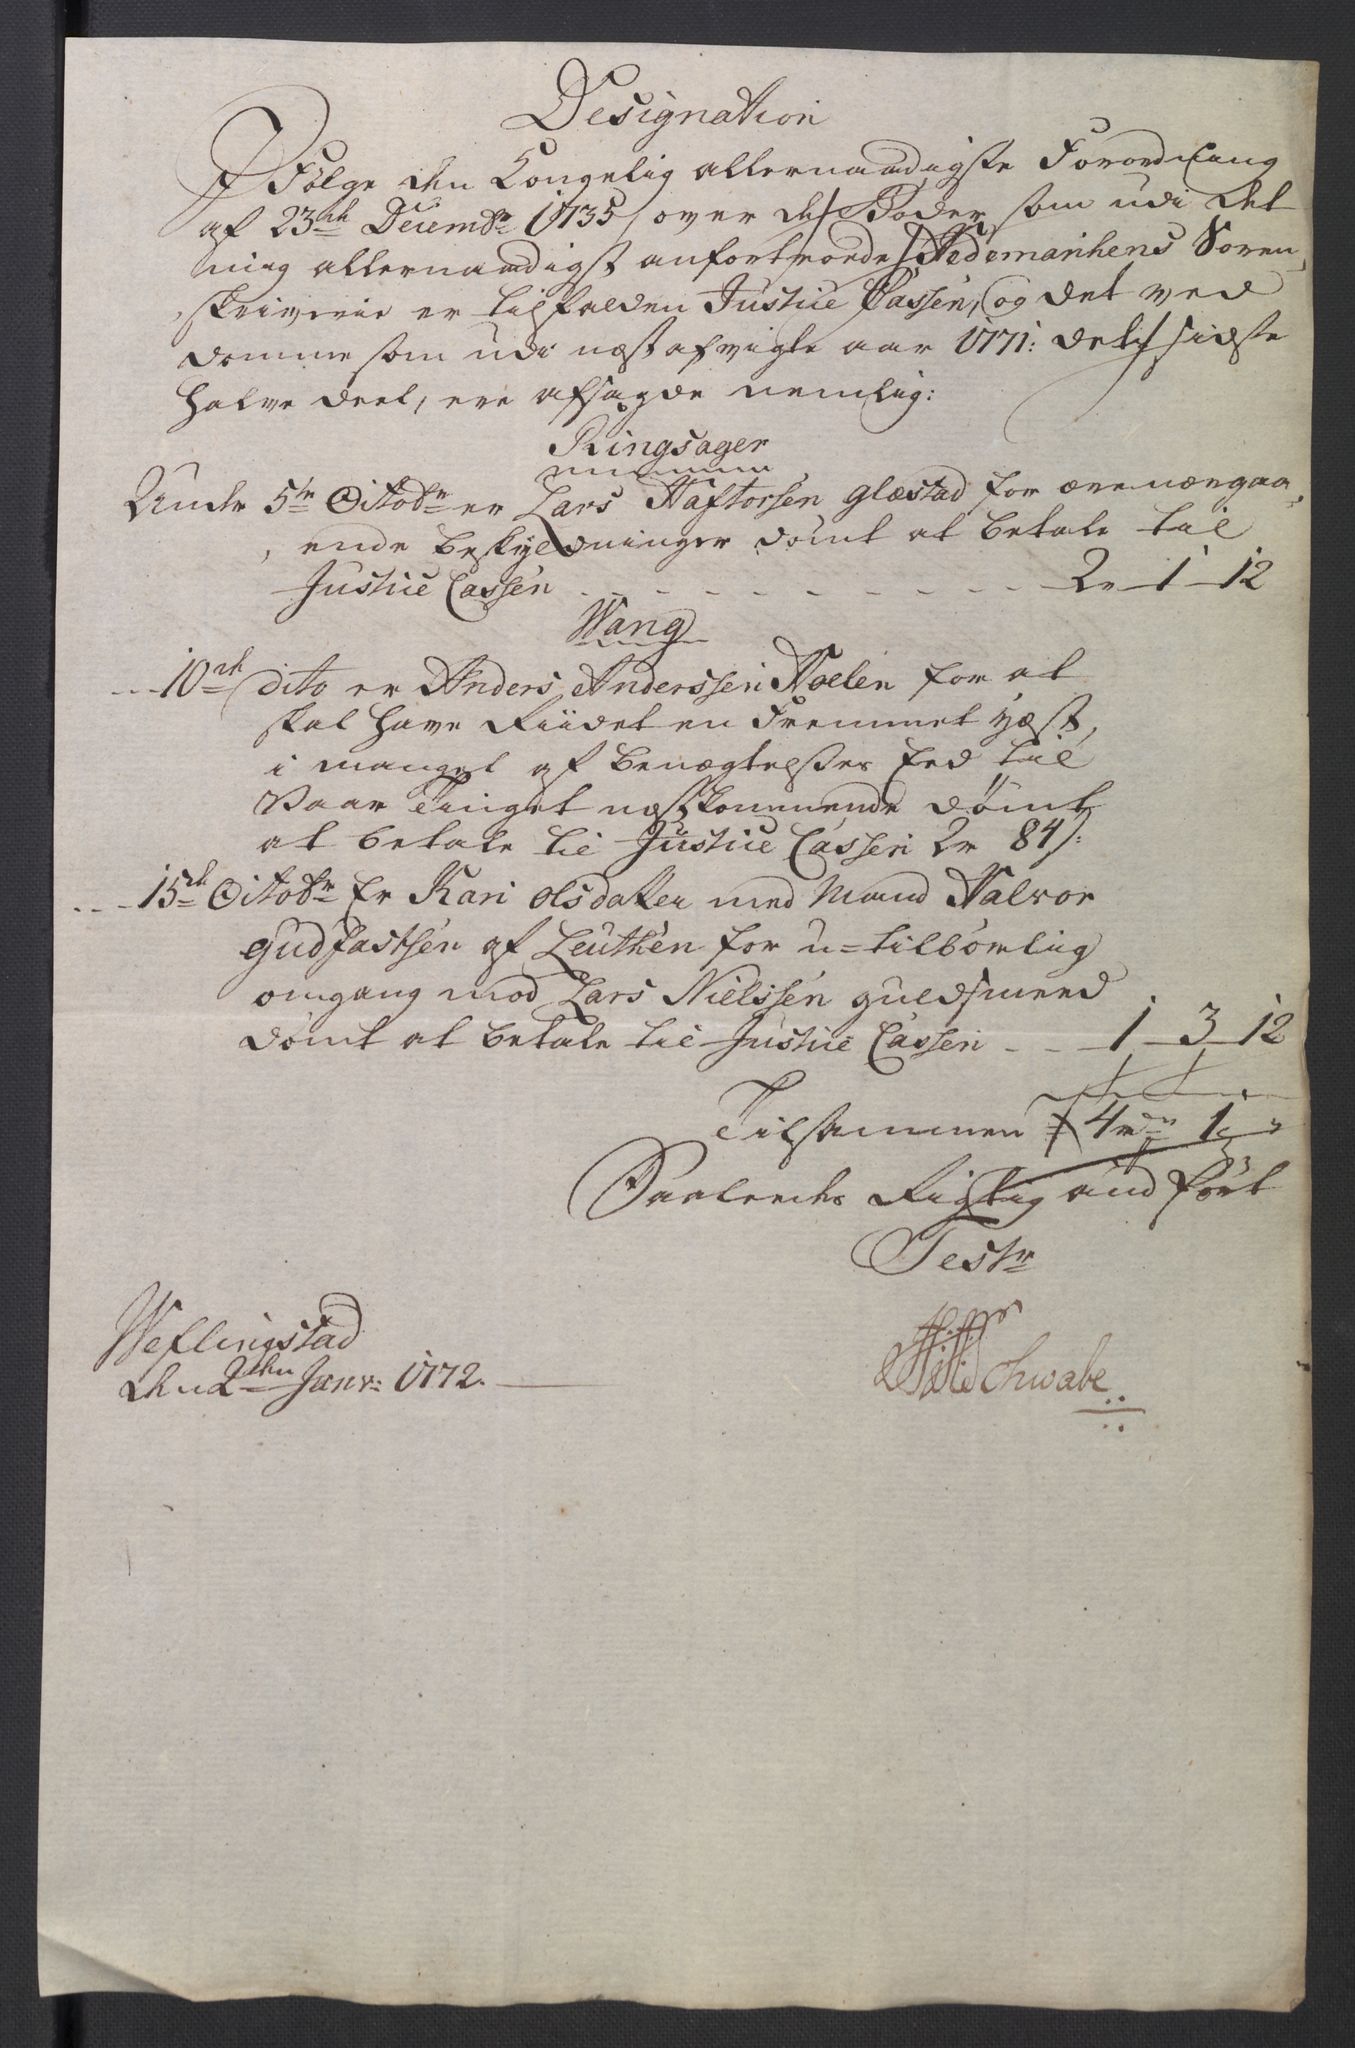 Designation
I Følge den Kongelig allernaadigste Forordning
af 23de Decembr 1735, over de Bøder, som udi det
mig allernaadigst anfortroede Hedemarkens Soren-
skriverie er tilfalden Justice Cassen, og det ved
domme som udi næst afvigte aar 1771: det sidste
halve deel, ere afsagde nemlig:
Ringsager
Under 5te Octobr er Lars Haftorsen Glæstad for ærenærgaa-
ende beskyldninger dømt at betale til
Justice Cassen - - - - - - - - - - 2r 1 12
Wang
- - 10de dito er Anders Anderssen Hoelen for at
skal have Riidet en Fremmet Hæst,
i mangel af benægtelses Eed til
Vaar Tinget næstkommende dømt
at betale til Justice Cassen 2r 84s:
- - 15de Octobr Er Kari Olsdatter med Mand Halvor
Gudfastsen af Leuthen for u-tilbørlig
omgang mod Lars Nielssen Guldsmed
dømt at betale til Justice Cassen - - 1 3 12
Tilsammen 4r 1
Saaledes Rigtig anført
Testr
Weflingstad
den 2den Janv: 1772.
Schwabe